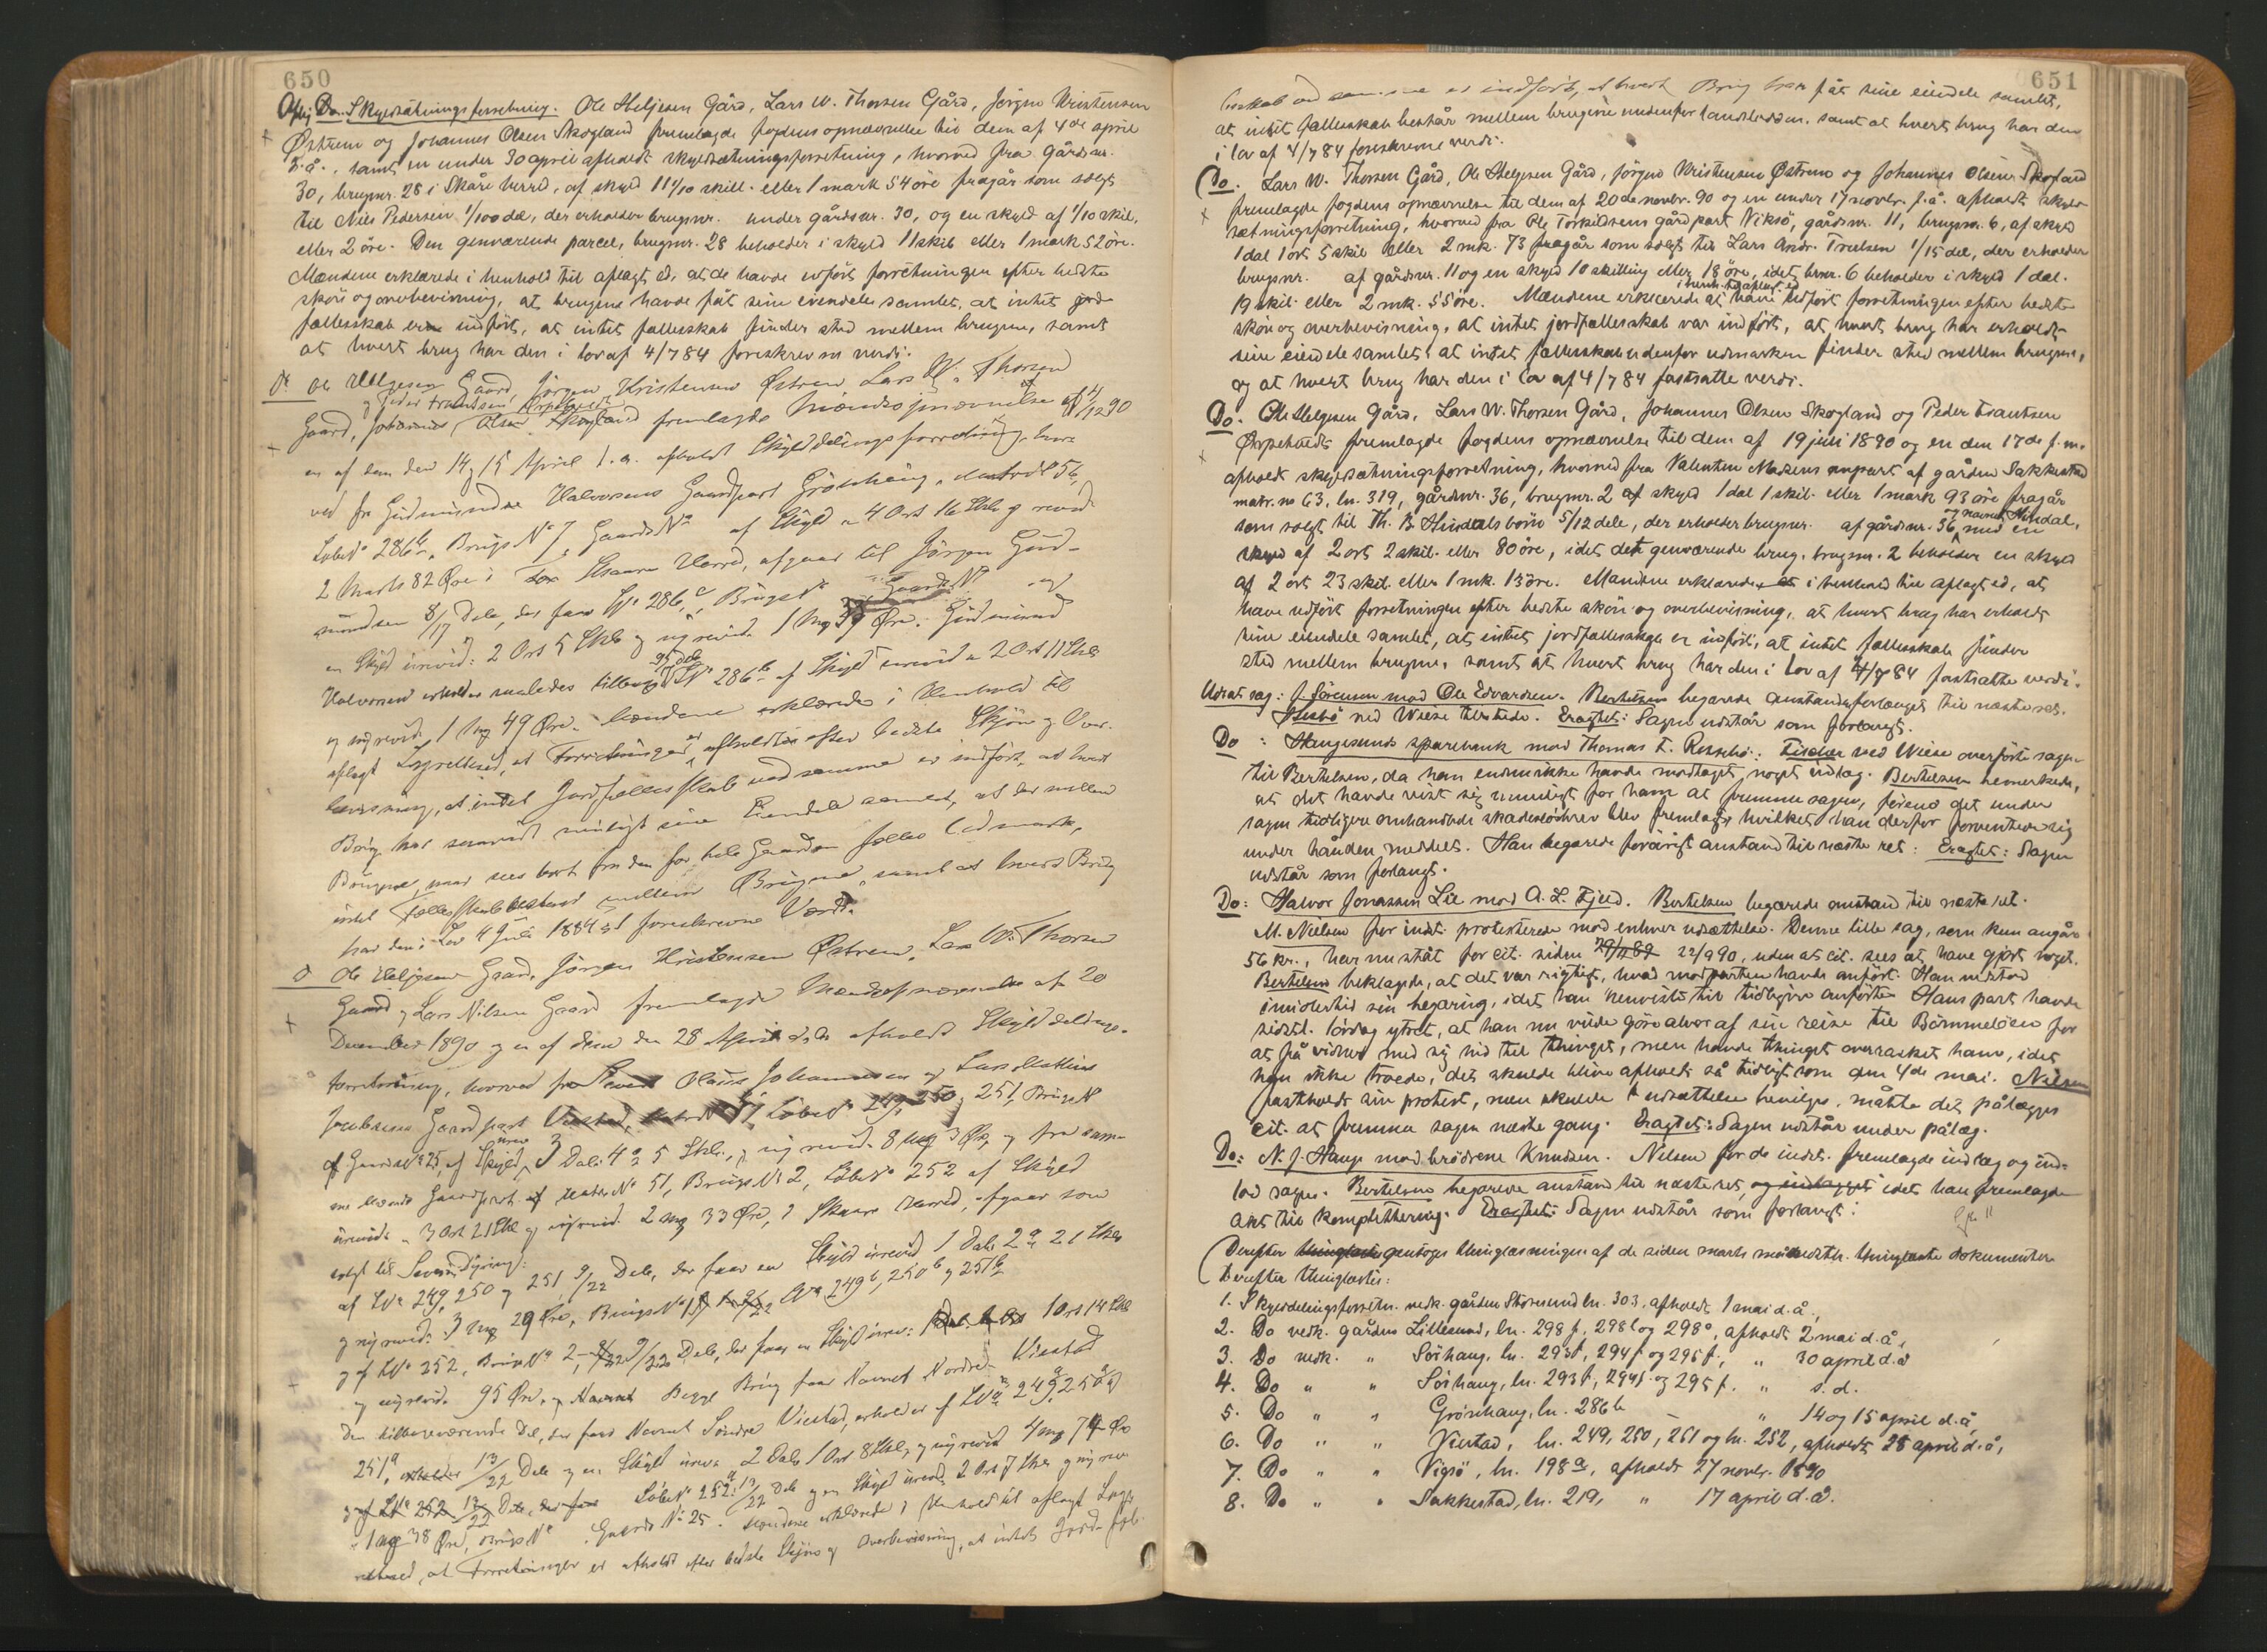 650
Aflg. Do. Skyldsætningsforretning. Ole Heljesen Gård, Lars W. Thorsen Gård, Jørgen Kristensen
Østrem og Johannes Olsen Skogland fremlagde fogdens opnævnelse til dem af 4de april
d.å., samt en under 30 april afholdt skyldsætningsforretning, hvorved fra gårdsnr.
30, brugsnr. 28 i Skåre herred, af skyld 11 1/10 skill. eller 1 mark 54 øre fragår som solgt
til Nils Pedersen 1/100 del, der erholder brugsnr. under gårdsnr. 30, og en skyld af 1/10 skil.
eller 2 øre. Den genværende parcel, brugsnr. 28 beholder i skyld 11 skil eller 1 mark 52 øre.
Mændene erklærede i henhold til aflagt ed, at de havde udført forretningen efter bedste
skøn og overbevisning, at brugene havde fåt sine eiendele samlet, at intet jord-
fællesskab er indført, at intet fællesskab finder sted mellem brugene, samt
at hvert brug har den i lov af 4/7 84 foreskrevne verdi.
Do Ole Helgesen Gaard, Jørgen Kristensen Østrem Lars W. Thorsen
og Peder Frantsen Ørpetvedt
Gaard, Johannes Olsen Skogland fremlagde Mændsopnævnelse af 4/12 90
en af dem den 14 og 15 April d.a. afholdt Skylddelingsforretning, hvor
ved fra Gudmund Halvorsens Gaardpart Grønhaug, Matr. No 56,
Løbe No 286 b, Brugs No 7, Gaards No af Skyld 4 Ort 16 Skl. og revid.
2 Mark 82 Øre i Skaare Herred, afgaar til Jørgen Gud-
mundsen 8/17 Dele, der faar L No 286 c, Brugs No Gaards No og
en Skyld urevid: 2 Ort 5 Skl. og ny revid. 1 Mg 33 Øre. Gudmund
Halvorsen erholder saaledes tilbage 9/17 dele L No 286 b af Skyld urevid. 2 Ort 11 Skl.
og ny revid. 1 Mg 49 Øre. Mændene erklærede i Henhold til
aflagt Lagretsed, at Forretningen er afholdt efter bedste Skjøn og Over-
bevisning, at intet Jordfællesskab ved samme er indført, at hvert
Brug har saavidt muligt sine Eiendele samlet, at der mellem
Brugene, naar sees bort fra den for hele Gaarden fælles Udmark,
intet Fællesskab bestaar mellem Brugene, samt at hvert Brug
har den i Lov 4 Juli 1884 foreskrevne Værdi.
Do Ole Heljesen Gaard, Jørgen Kristensen Østrem, Lars W. Thorsen
Gaard og Lars Nilsen Gaard fremlagde Mændsopnævnelse af 20
December 1890 og en af dem den 28 April d.a. afholdt Skylddelings-
forretning, hvorved fra Johannesen og Lars Mathias
Jacobsens Gaardpart Viestad, Matr No 51, Løbe No 249, 250 og 251, Brugs No
af Gaards No 25, af Skyld urev 3 Daler 4 o 5 Skl., og ny revid. 8 Mg 3 Øre, og fra sam-
me Mænds Gaardpart af Matr No 51, Brugs No 2, Løbe No 252 af Skyld
urevid. 3 Ort 21 Skl og ny revid. 2 Mg 33 Øre, i Skaare Herred, afgaar som
solgt til Severin Dyring:
af L No 249, 250 og 251, 9/22 Dele, der faar en Skyld urevid 1 Daler 2 o 21 Skl
og ny revid: 3 Mg 29 Øre, Brugs No L No 249 b, 250 b og 251 b
og af L No 252, Brugs No 2, 9/22 Dele, der faar en Skyld urev: 1 Ort 14 Skl
og ny revid. 95 Øre, Begge Brug faar Navnet Nordre Viestad
Den tilbageværende Del, der faar Navnet Søndre Viestad, erholder af L No 249 a, 250 a og
251 a, 13/22 Dele og en Skyld urev. 2 Daler 1 Ort 8 Skl, og ny revid 4 Mg 74 Øre
Løbe No 252 a 13/22 Dele og en Skyld urevid. 2 Ort 7 Skl. og ny rev
1 Mg 38 Øre, Brugs No . Gaards No 25. Mændene erklærede i Henhold til aflagt Lag-
rettesed, at Forretningen er afholdt efter bedste Skjøn og Overbevisning, at intet Jordfæl-
651
lesskab ved samme er indført, at hvert Brug har fåt sine eiendele samlet,
at intet fællesskab består mellem brugene udenfor samt at hvert brug har den
i lov af 4/7 84 foreskrevne verdi.
Do. Lars W. Thorsen Gård, Ole Helgesen Gård, Jørgen Kristensen Østrem og Johannes Olsen Skogland
fremlagde fogdens opnævnelse til dem af 20de novbr. 90 og en under 17 novbr. f.å. afholdt skyld-
sætningsforretning, hvorved fra Ole Torkildsens gårdpart Viksø, gårdsnr. 11, brugsnr. 6, af skyld
1 dal 1 ort 5 skil eller 2 mk. 73 fragår som solgt til Lars Andr. Truelsen 1/15 del, der erholder
brugsnr. af gårdsnr. 11 og en skyld 10 skilling eller 18 øre, idet brnr. 6 beholder i skyld 1 dal.
19 skil. eller 2 mk. 55 øre. Mændene erklærede i henh. til aflagt ed at have udført forretningen efter bedste
skøn og overbevisning, at intet jordfællesskab var indført, at hvert brug har erholdt
sine eiendele samlet, at intet fællesskab udenfor udmarken finder sted mellem brugene,
og at hvert brug har den i lov af 4/7 84 fastsatte verdi.
Do. Ole Helgesen Gård, Lars W. Thorsen Gård, Johannes Olsen Skogland og Peder Frantsen
Ørpetvedt fremlagde fogdens opnævnelse til dem af 19 juli 1890 og en den 17de f.m.
afholdt skyldsætningsforretning, hvorved fra Valentin Madsens anpart af gården Sakkestad
matr. no 63, ln. 319, gårdsnr. 36, brugsnr. 2 af skyld 1 dal 1 skil. eller 1 mark 93 øre fragår
som solgt til Th. B. Hindals børn 5/12 dele, der erholder brugsnr. af gårdsnr. 36, og navnet Hindal, med en
skyld af 2 ort 2 skil. eller 80 øre, idet det genværende brug, brugsnr. 2 beholder en skyld
af 2 ort 23 skil. eller 1 mk. 13 øre. Mændene erklærede at i henhold til aflagt ed, at
have udført forretningen efter bedste skøn og overbevisning, at hvert brug har erholdt
sine eiendele samlet, at intet jordfællesskab er indført, at intet fællesskab finder
sted mellem brugene, samt at hvert brug har den i lov af 4/7 84 fastsatte verdi.
Udsat sag: J. Sørensen mod Ole Edvardsen. Bertelsen begærede anstand forlænget til næste ret.
Husbø ved Wiese tilstede. Eragtet: Sagen udstår som forlangt.
Do: Haugesunds sparebank mod Thomas T. Røksebø: Fischer ved Wiese overførte sagen
til Bertelsen, da han endnu ikke havde modtaget noget indlæg. Bertelsen bemerkede,
at det havde vist sig umuligt for ham at fremme sagen, førend det under
sagen tidligere omhandlede skadesløsbrev blev fremlagt, hvilket han derfor forventede sig
under hånden meddelt. Han begærede forøvrigt anstand til næste ret: Eragtet: Sagen
udstår som forlangt.
Do: Halvor Jonassen Lie mod A. L. Fjeld. Bertelsen begærede anstand til næste ret.
M. Nielsen for indst. protesterede mod enhver udsættelse. Denne lille sag, som kun angår
56 kr., har nu ståt for cit. siden 29/11 89 22/9 90, uden at cit. sees at have gjort noget.
Bertelsen beklagede, at det var rigtigt, hvad modparten havde anført. Han nedstod
imidlertid sin begæring, idet han henviste til tidligere anførte. Hans part havde
sidstl. lørdag ytret, at han nu vilde gøre alvor af sin reise til Bømmeløen for
at få vidner med sig hid til thinget, men havde thinget overrasket ham, idet
han ikke troede, det skulde blive afholdt så tidligt som den 4de mai. Nielsen
fastholdt sin protest, men skulde udsættelse bevilges, måtte det pålægges
cit. at fremme sagen næste gang. Eragtet: Sagen udstår under pålæg.
Do: N. J. Hauge mod brødrene Knudsen. Nielsen for de indst. fremlagde indlæg og ind-
lod sagen. Bertelsen begærede anstand til næste ret, og indlægget idet han fremlagde
akt til komplettering. Eragtet: Sagen udstår som forlangt.
Derefter thinglæste gentoges thinglæsningen af de siden marts thinglæste dokumenter
Derefter thinglæstes:
1. Skylddelingsforretn. vedk. gården Storesund ln. 303, afholdt 1 mai d.å.,
2. Do vedk. gården Lillesund, ln. 298 f, 298 l og 298 o, afholdt 2 mai d.å.,
3. Do vedk. " Sørhaug, ln. 293 f, 294 f og 295 f, " 30 april d.å
4. Do " " Sørhaug, ln. 293 f, 294 f og 295 f. " s. d.
5. Do " " Grønhaug, ln. 286 b " 14 og 15 april d.å,
6. Do " " Viestad, ln. 249, 250, 251 og ln. 252, afholdt 28 april d.å,
7. Do " " Vigsø, ln. 198 a, afholdt 27 novbr. 1890
8. Do " " Sakkestad, ln. 219, " 17 april d.å.